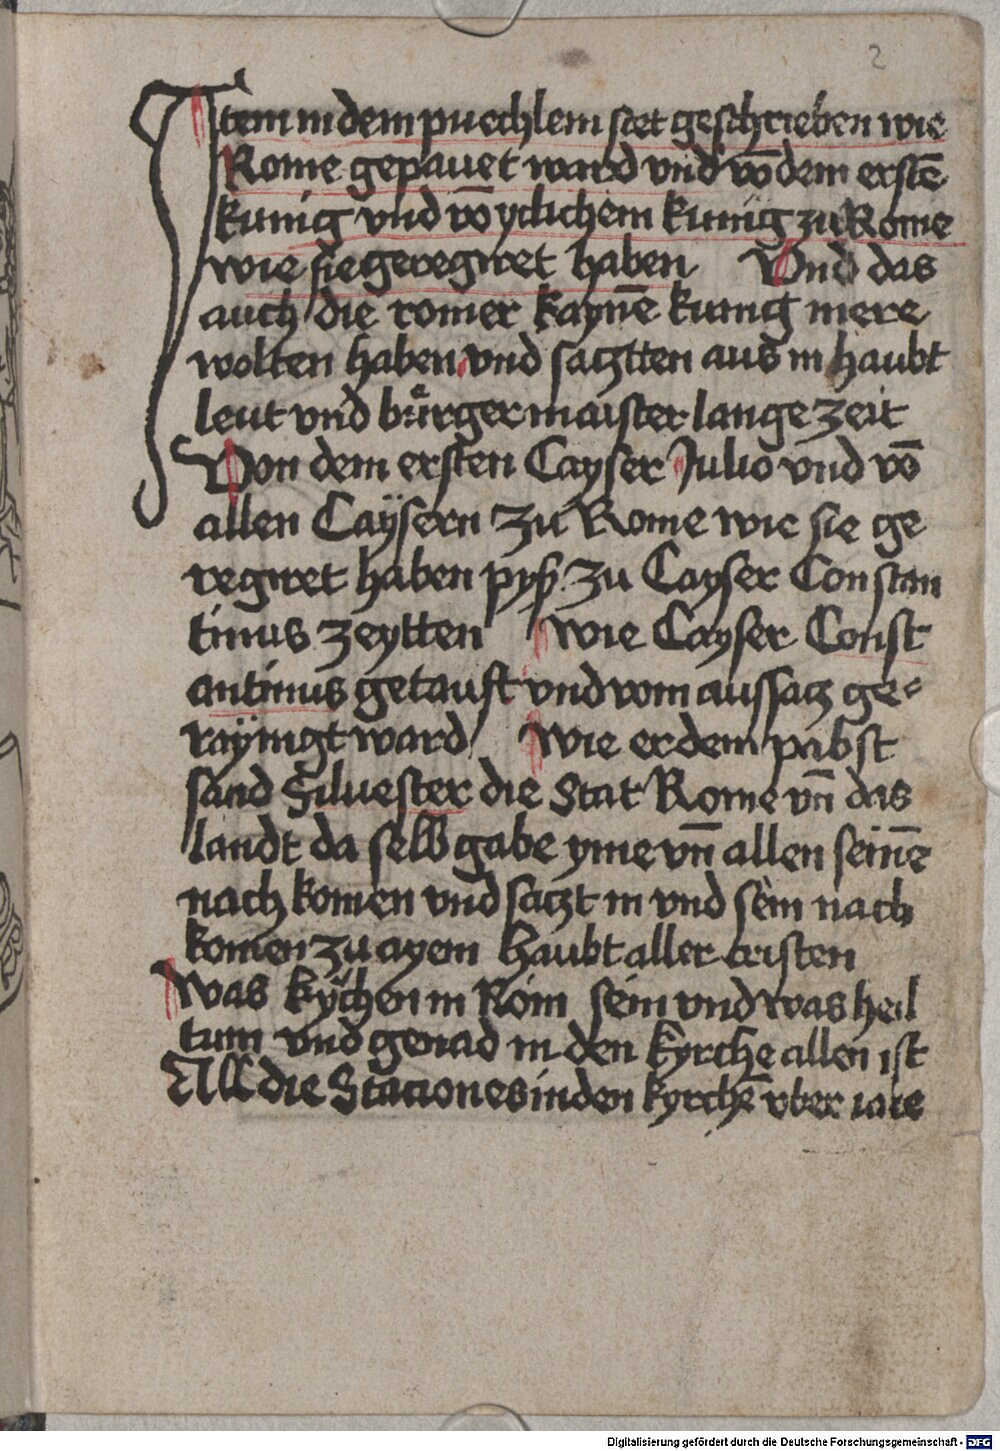 2
Item in dem puechlein stet geschrieben wie
Rome gepauet ward vnd vō dem erstē
kunig vnd vō yclichem kunig zu Rome
wie sie geregiret haben Vnd das
auch die romer kaynē kunig mere
wolten haben vnd saczten aus in haubt
leut vnd bůrgermaister lange zeit
Von dem ersten Cayser Julio vnd vō
allen Caÿsern zu Rome wie sie ge
regiret haben pyß zu Cayser Constan
tinus zeytten wie Cayser Const
antinus getauft vnd vom aussacz ge=
raÿnigt ward wie er dem pabst
sand Siluester die Stat Rome vn̄ das
landt da selb gabe yme vn̄ allen seinē
nach komen vnd saczt in vnd sein nach
komen zu aynem haubt aller cristen
Was kÿrchen in Rom sein vnd was heil
tum vnd genad in den kyrchen allen ist
All die Staciones in den kyrchē vber iare
Digitalisierung gefördert durch die Deutsche Forschungsgemeinschaft - DFG